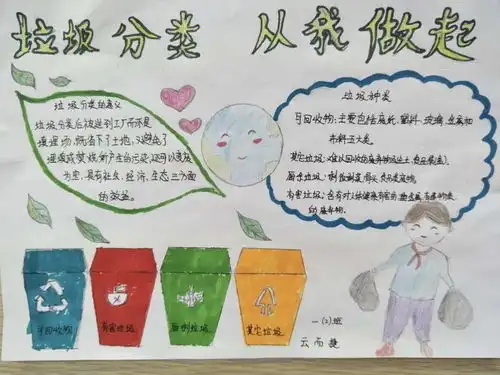 垃圾分类 从我做起
垃圾分类的意义
垃圾分类后被送到工厂而不是
填埋场,既省下了土地,又避免了
填埋或焚烧所产生的污染,还可以变废
为宝。具有社会、经济、生态三方面
的效益。
垃圾种类
可回收物:主要包括废纸、塑料、玻璃、金属和
布料五大类。
其它垃圾:
厨余垃圾:
有害垃圾:含有对人体健康有害的重金属、有毒的物质
的废弃物。
可回收物
有害垃圾
厨余垃圾
其它垃圾
一(2)班
云雨捷